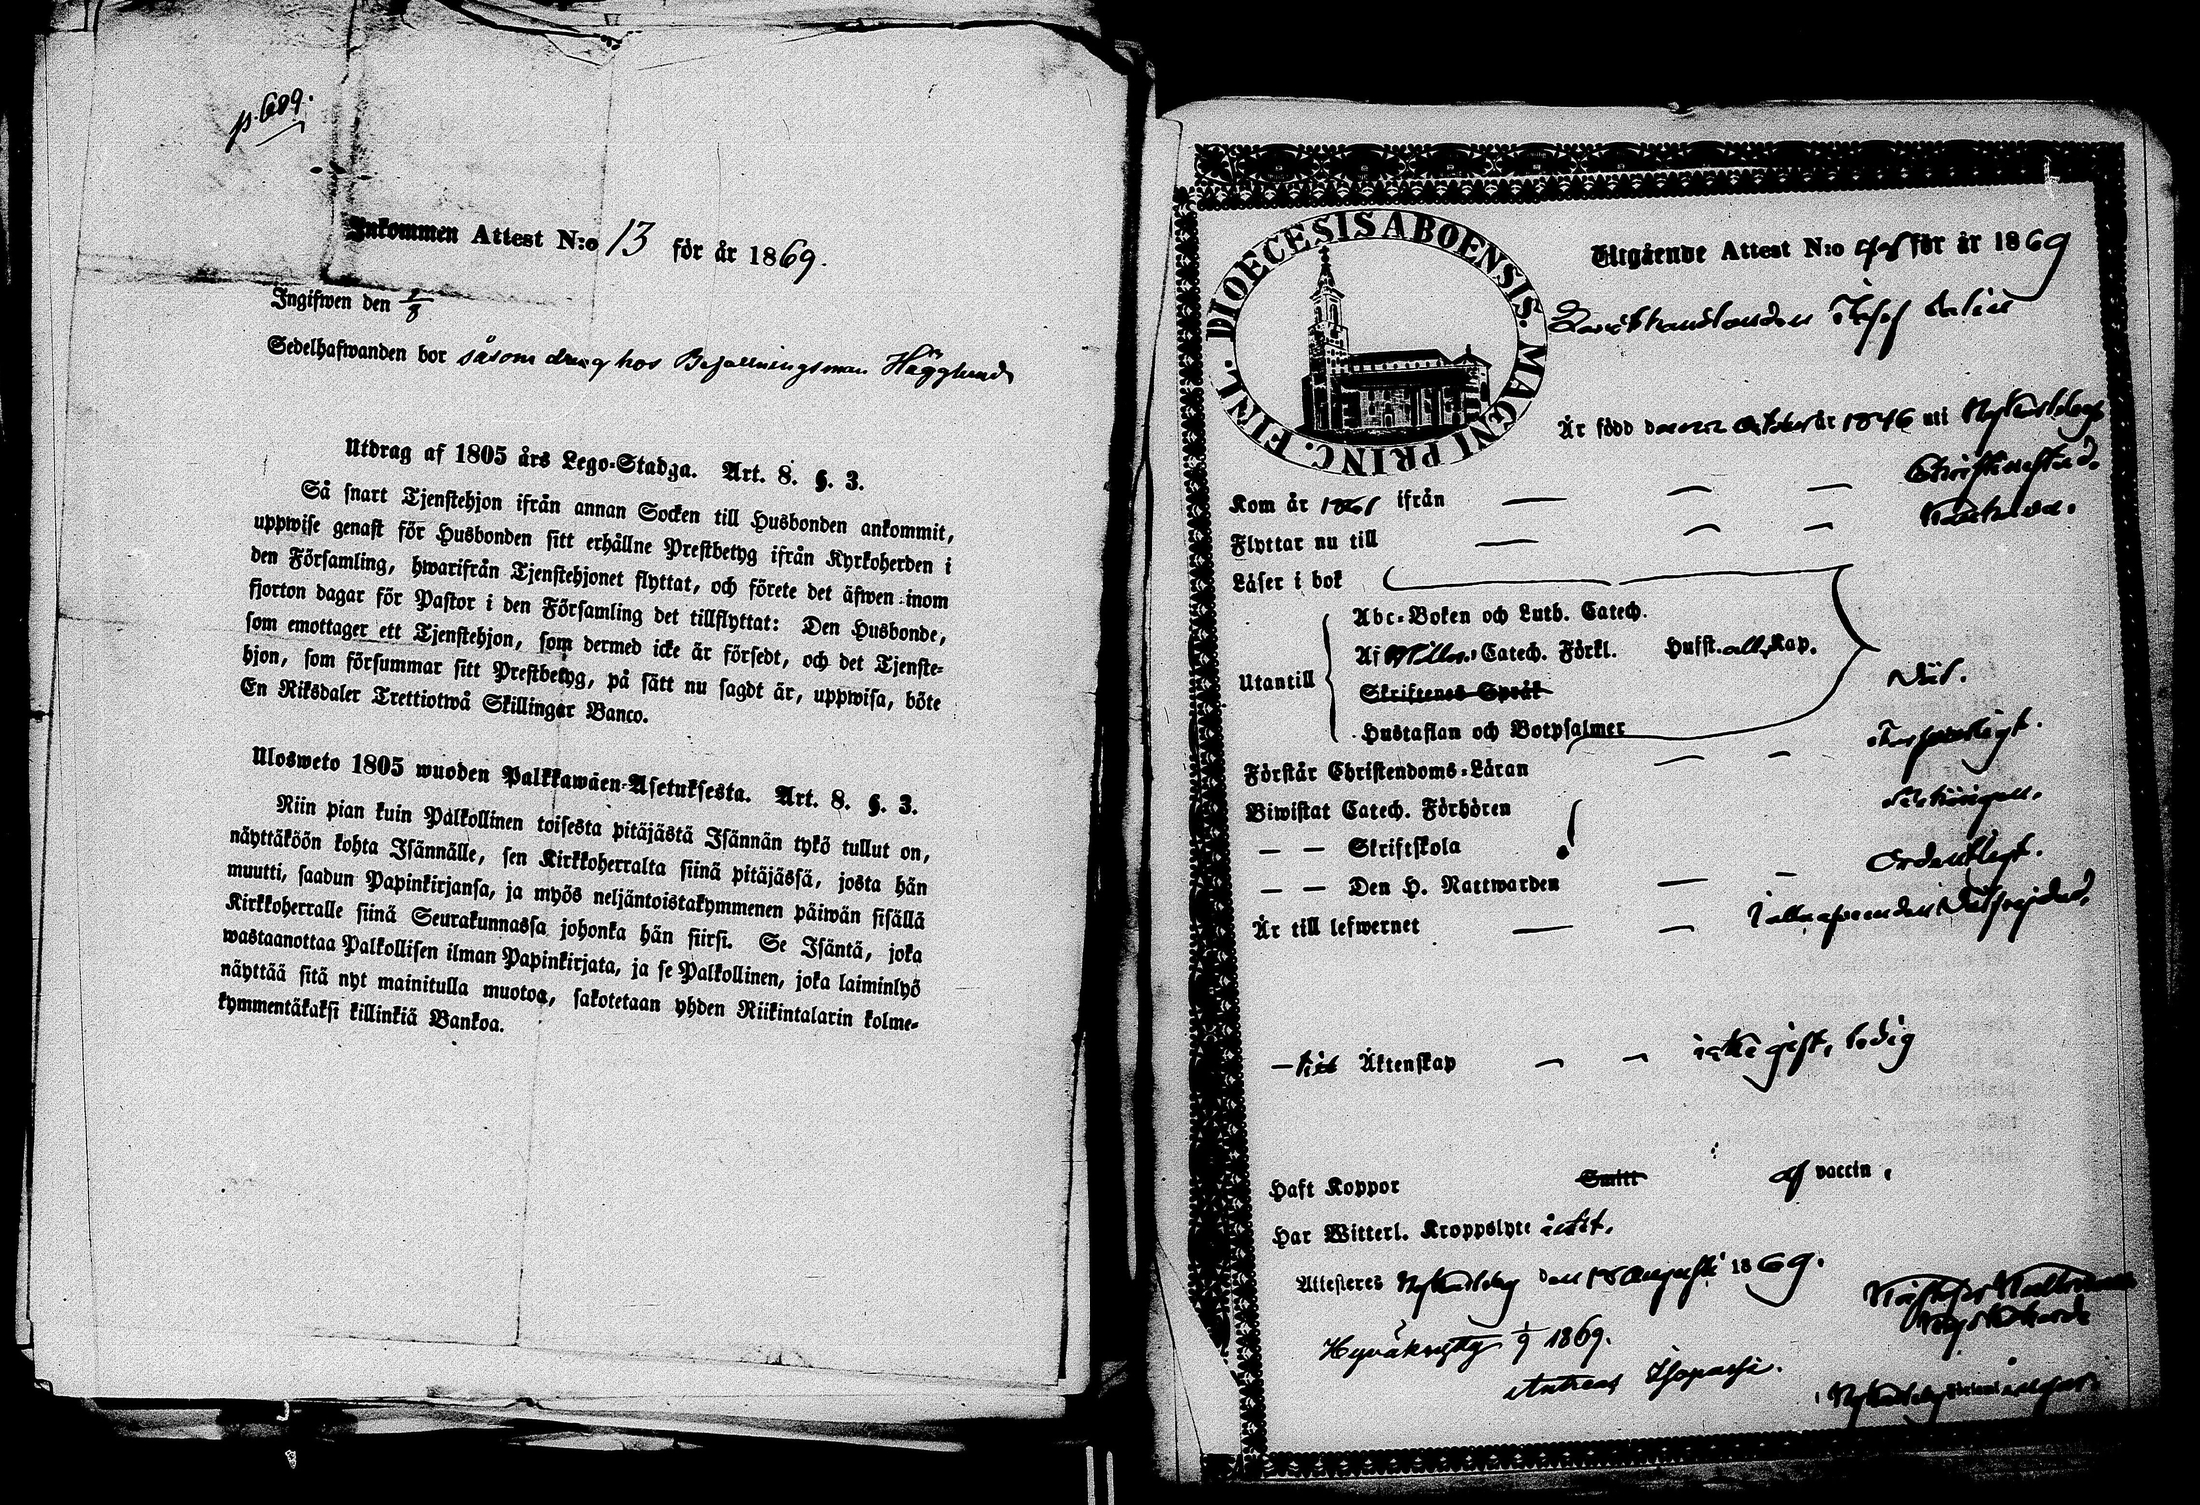 p. 689.
Inkommen Attest N:o 13 för år 1869.
Ingifwen den
Sedelhafwanden bor såsom dräng hos Befallningsman Hägglund
Utdrag af 1805 års Lego-Stadga. Art. 8. §. 3.
Så snart Tjenstehjon ifrån annan Socken till Husbonden ankommit,
uppwise genast för Husbonden sitt erhållne Prestbetyg ifrån Kyrkoherden i
den Församling, hwarifrån Tjenstehjonet flyttat, och förete det äfwen inom
fjorton dagar för Pastor i den Församling det tillflyttat: Den Husbonde,
som emottager ett Tjenstehjon, som dermed icke är försedt, och det Tjenste-
hjon, som försummar sitt Prestbetyg, på sätt nu sagdt är, uppwisa, böte
En Riksdaler Trettiotwå Skillingar Banco.
Ulosweto 1805 wuoden Palkkawäen-Asetuksesta. Art. 8. §. 3.
Niin pian kuin Palkollinen toisesta pitäjästä Isännän tykö tullut on,
näyttäköön kohta Isännälle, sen Kirkkoherralta siinä pitäjässä, josta hän
muutti, saadun Papinkirjansa, ja myös neljäntoistakymmenen päiwän sisällä
Kirkkoherralle siinä Seurakunnassa johonka hän siirsi. Se Isäntä, joka
wastaanottaa Palkollisen ilman Papinkirjata, ja se Palkollinen, joka laiminlyö
näyttää sitä nyt mainitulla muotoa, sakotetaan yhden Riikintalarin kolme-
kymmentäkaksi killinkiä Bankoa.
DIOECESIS ABOENSIS. MAGNI PRINC. FINL.
Utgående Attest N:o för år 1869
Josef
Är född den 22 October år 1846 uti Nykarleby
Kom år 1861 ifrån — — — Christinestad.
Flyttar nu till — — —
Läser i bok
Utantill
Abc-Boken och Luth. Catech.
Af Catech. Förkl. Hufst. alla Kap.
Skriftenes Språk
Hustaflan och Botpsalmer
Förstår Christendoms-Läran — —
Biwistat Catech. Förhören
— — Skriftskola
— — Den H. Nattwarden — — Ordentligt.
Är till lefwernet — —
— till Äktenskap — — icke gift, ledig
Haft Koppor Smitt af vaccin.
Har Witterl. Kroppslyte intet.
Attesteras Nykarleby den 18 Augusti 1869.
Hyväksytty 1/9 1869.
Andreas Isopassi.